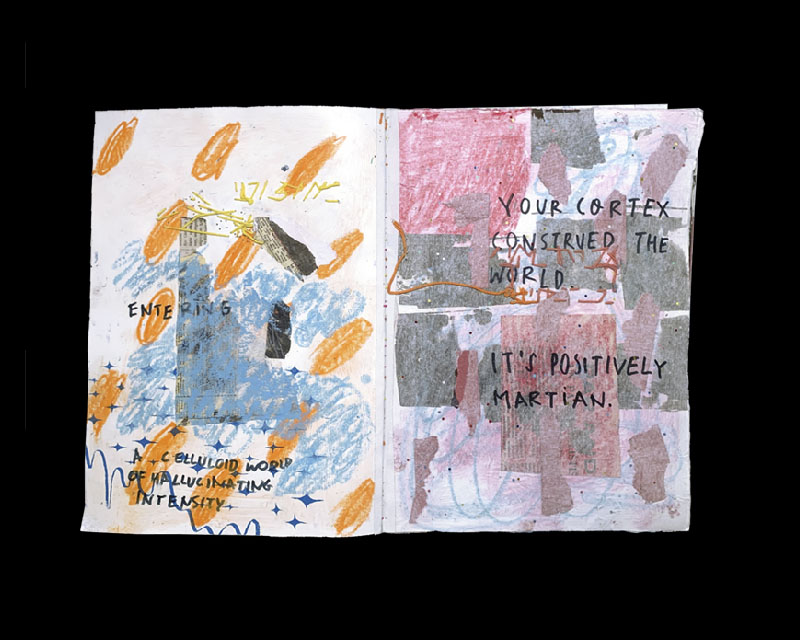 ENTERING
A CELLULOID WORLD
OF HALLUCINATING
INTENSITY
YOUR CORTEX
CONSTRUED THE
WORLD.
IT'S POSITIVELY
MARTIAN.